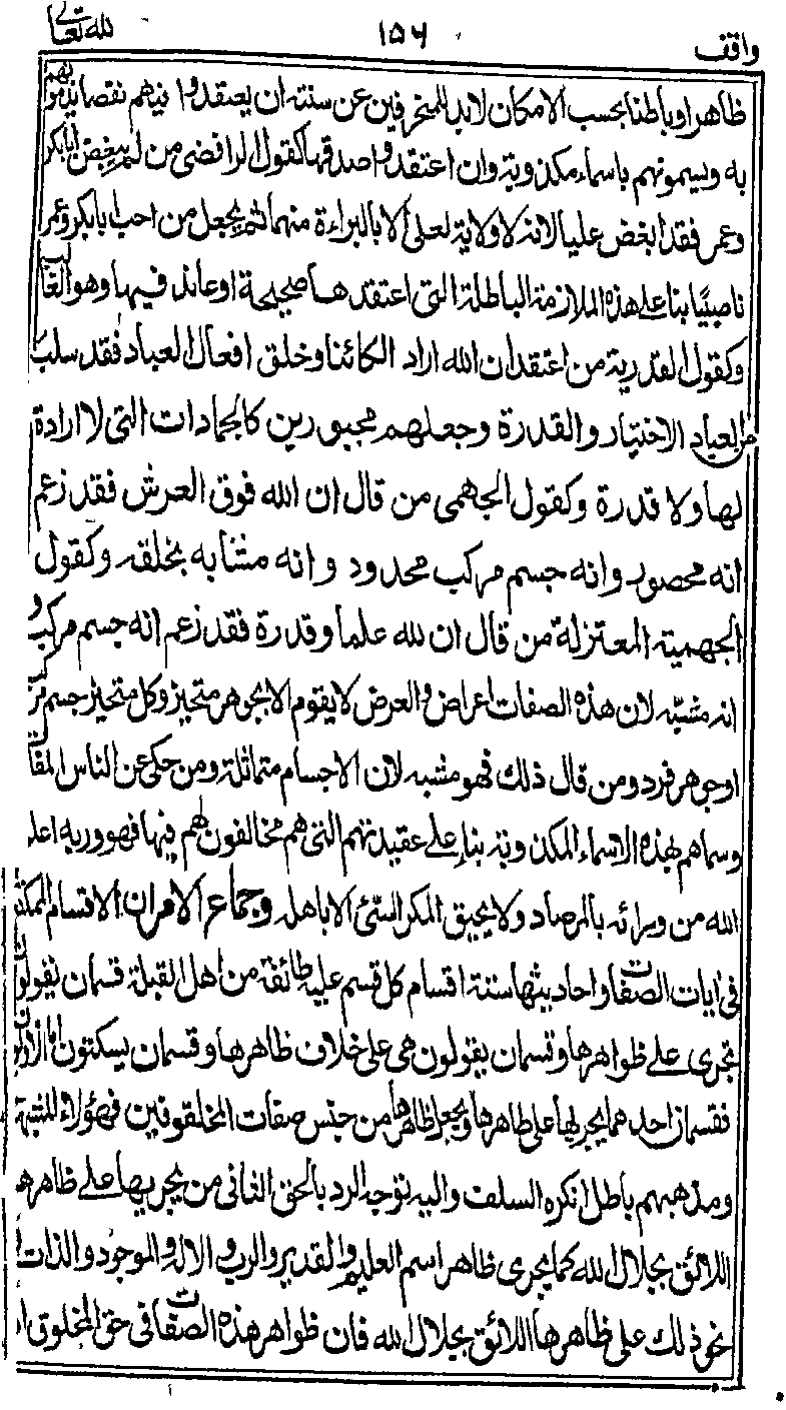 واقف ١٥٦ لله تعالى
ظاهرا وباطنا بحسب الامكان لابد للمنحرفين عن سنته ان يعتقدوا فيهم نقصا يذمونهم
به ويسمونهم باسماء مكذوبة وان اعتقدوا صدقها كقول الرافضى من لم يبغض ابابكر
وعمر فقد ابغض عليا لانه لا ولاية لعلى الا بالبراءة منهما ثم يجعل من احب ابابكر وعمر
ناصبيا بنا على هذه الملازمة الباطلة التى اعتقدها صحيحة او عاند فيها وهو الغالب
وكقول القدرية من اعتقد ان الله اراد الكائنا وخلق افعال العباد فقد سلب
من العباد الاختيار والقدرة وجعلهم مجبورين كالجمادات التى لا ارادة
لها ولا قدرة وكقول الجهمى من قال ان الله فوق العرش فقد زعم
انه محصور وانه جسم مركب محدود وانه مشابه بخلقه وكقول
الجهمية المعتزلة من قال ان لله علما وقدرة فقد زعم انه جسم مركب و
انه مشبه لان هذه الصفات اعراض والعرض لا يقوم الا بجوهر متحيز وكل متحيز جسم مركب
او جوهر فرد ومن قال ذلك فهو مشبه لان الاجسام متماثلة ومن حكى عن الناس المقالات
وسماهم بهذه الاسماء المكذوبة بناء على عقيدتهم التى هم مخالفون لهم فيها فهو وربه اعلم
الله من ورائه بالمرصاد ولا يحيق المكر السئ الا باهله وجماع الامر ان الاقسام الممكنة
فى ايات الصفات واحاديثها ستة اقسام كل قسم عليه طائفة من اهل القبلة قسمان يقولون
تجرى على ظواهرها وقسمان يقولون هى على خلاف ظاهرها وقسمان يسكتون اما الاولون
فقسمان احدهما يجريها على ظاهرها ويجعل ظاهرها من جنس صفات المخلوقين فهؤلاء المشبهة
ومذهبهم باطل انكره السلف واليه توجه الرد بالحق الثانى من يجريها على ظاهرها
اللائق بجلال الله كما يجرى ظاهر اسم العليم والقدير والرب والاله والموجود والذات
نحو ذلك على ظاهرها اللائق بجلال الله فان ظواهر هذه الصفات فى حق المخلوق